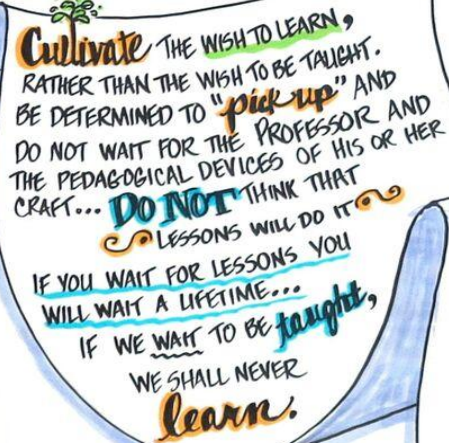 Cultivate THE WISH TO LEARN,
RATHER THAN THE WISH TO BE TAUGHT.
BE DETERMINED TO "pick up" AND
DO NOT WAIT FOR THE PROFESSOR AND
THE PEDAGOGICAL DEVICES OF HIS OR HER
CRAFT... DO NOT THINK THAT
LESSONS WILL DO IT
IF YOU WAIT FOR LESSONS YOU
WILL WAIT A LIFETIME...
IF WE WAIT TO BE taught,
WE SHALL NEVER
learn.